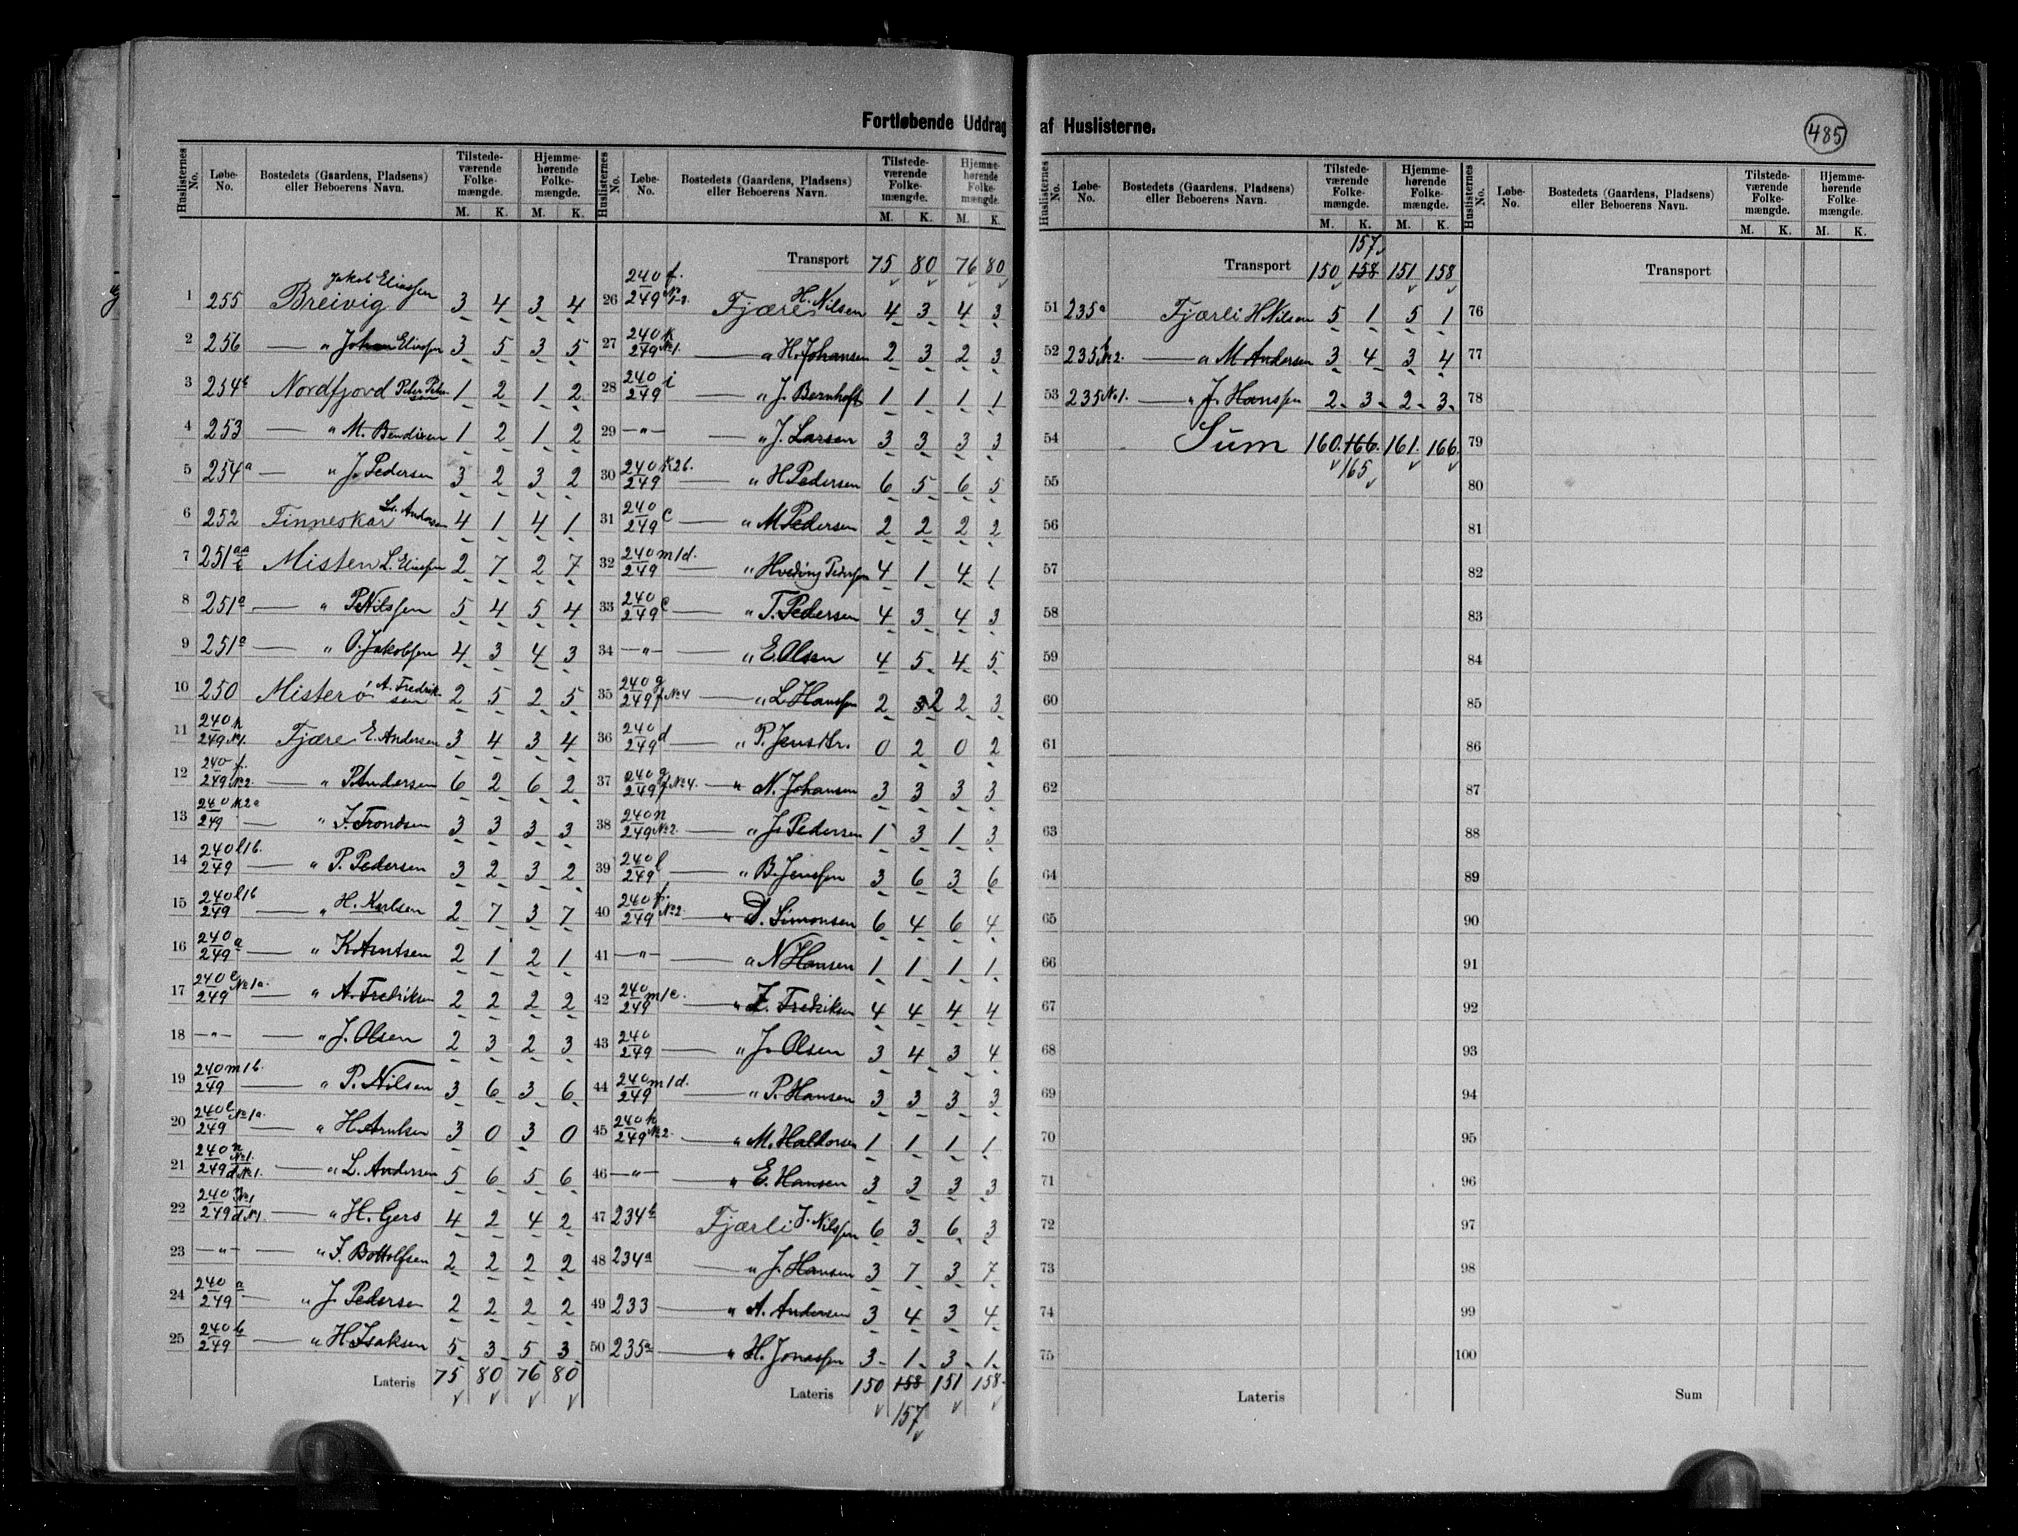 Fortløbende Uddrag af Huslisterne.
485
Huslisternes No. Løbe-No. Bostedets (Gaardens, Pladsens) eller Beboerens Navn. Tilstedeværende Folkemængde. M. K. Hjemmehørende Folkemængde. M. K.
1 255 Breivig Jakob Eliassen 3 4 3 4
2 256 — " Johan Eliassen 3 5 3 5
3 254b Nordfjord Peder Pedersen 1 2 1 2
4 253 — " M. Bendixen 1 2 1 2
5 254a — " J. Pedersen 3 2 3 2
6 252 Finneskar Andersen 4 1 4 1
7 251 Misten L. Eliassen 2 7 2 7
8 251a — " P. Nilssen 5 4 5 4
9 251a — " O. Jakobsen 4 3 4 3
10 250 Misterö A. Fredriksen 2 5 2 5
11 240/249 No 1. Fjære E. Andersen 3 4 3 4
12 240/249 f. No 2. — " P. Andersen 6 2 6 2
13 240/249 k2a — " J. Trondsen 3 3 3 3
14 240/249 l1b. — " P. Pedersen 3 2 3 2
15 240/249 l1b — " H. Karlsen 2 7 3 7
16 240/249 a — " K. Arntsen 2 1 2 1
17 240/249 e No 1a. — " A. Fredriksen 2 2 2 2
18 —"— " J. Olsen 2 3 2 3
19 240/249 m1b. — " P. Nilsen 3 6 3 6
20 240/249 e No 1a. — " H. Arntsen 3 0 3 0
21 240/249 n No 1. d No 1. — " L. Andersen 5 6 5 6
22 240/249 n No 1 d No 1. — " H. Gers 4 2 4 2
23 —"— " J. Bottolfsen 2 2 2 2
24 240/249 a — " J. Pedersen 2 2 2 2
25 240/249 b — " H. Isaksen 5 3 5 3
Lateris 75 80 76 80
Huslisternes No. Løbe-No. Bostedets (Gaardens, Pladsens) eller Beboerens Navn. Tilstedeværende Folkemængde. M. K. Hjemmehørende Folkemængde. M. K.
Transport 75 80 76 80
26 240/249 f. Fjære H. Nilsen 4 3 4 3
27 240/249 No 1. — " H. Johansen 2 3 2 3
28 240/249 i — " J. Bernhoft 1 1 1 1
29 —"— — " J. Larsen 3 3 3 3
30 240/249 K2b. — " H. Pedersen 6 5 6 5
31 240/249 c — " M. Pedersen 2 2 2 2
32 240/249 m1d. — " Hveding Pedersen 4 1 4 1
33 240/249 c — " T. Pedersen 4 3 4 3
34 —"— — " E. Olsen 4 5 4 5
35 240/249 g f No 4 — " L. Hanssen 2 3 2 2 3
36 240/249 d — " P. Jenstbr. 0 2 0 2
37 240/249 g f No 4. — " N. Johansen 3 3 3 3
38 240/249 n No 2. — " J. Pedersen 1 3 1 3
39 240/249 l — " B. Jenssen 3 6 3 6
40 240/249 f. No 2. — " D. Simonsen 6 4 6 4
41 —"— — " N. Hansen 1 1 1 1
42 240/249 m1c. — " Fredriksen 4 4 4 4
43 240/249 — " J. Olsen 3 4 3 4
44 240/249 m1d. — " P. Hansen 3 3 3 3
45 240/249 h No 2. — " M. Haldorsen 1 1 1 1
46 —"— — " E. Hansen 3 3 3 3
47 234b Fjærli J. Nilssen 6 3 6 3
48 234a — " J. Hansen 3 7 3 7
49 233 — " A. Andersen 3 4 3 4
50 235a — " H. Jonassen 3 1 3 1
Lateris 150 158 151 158
157
Huslisternes No. Løbe-No. Bostedets (Gaardens, Pladsens) eller Beboerens Navn. Tilstedeværende Folkemængde. M. K. Hjemmehørende Folkemængde. M. K.
157
Transport 150 158 151 158
51 235a Fjærli H. Nilsen 5 1 5 1
52 235 No 2. — " M. Andersen 3 4 3 4
53 235 No 1. — " J. Hanssen 2 3 2 3
54 Sum 160 166 161 166
165
55
56
57
58
59
60
61
62
63
64
65
66
67
68
69
70
71
72
73
74
75
Lateris
Huslisternes No. Løbe-No. Bostedets (Gaardens, Pladsens) eller Beboerens Navn. Tilstedeværende Folkemængde. M. K. Hjemmehørende Folkemængde. M. K.
Transport
76
77
78
79
80
81
82
83
84
85
86
87
88
89
90
91
92
93
94
95
96
97
98
99
100
Sum